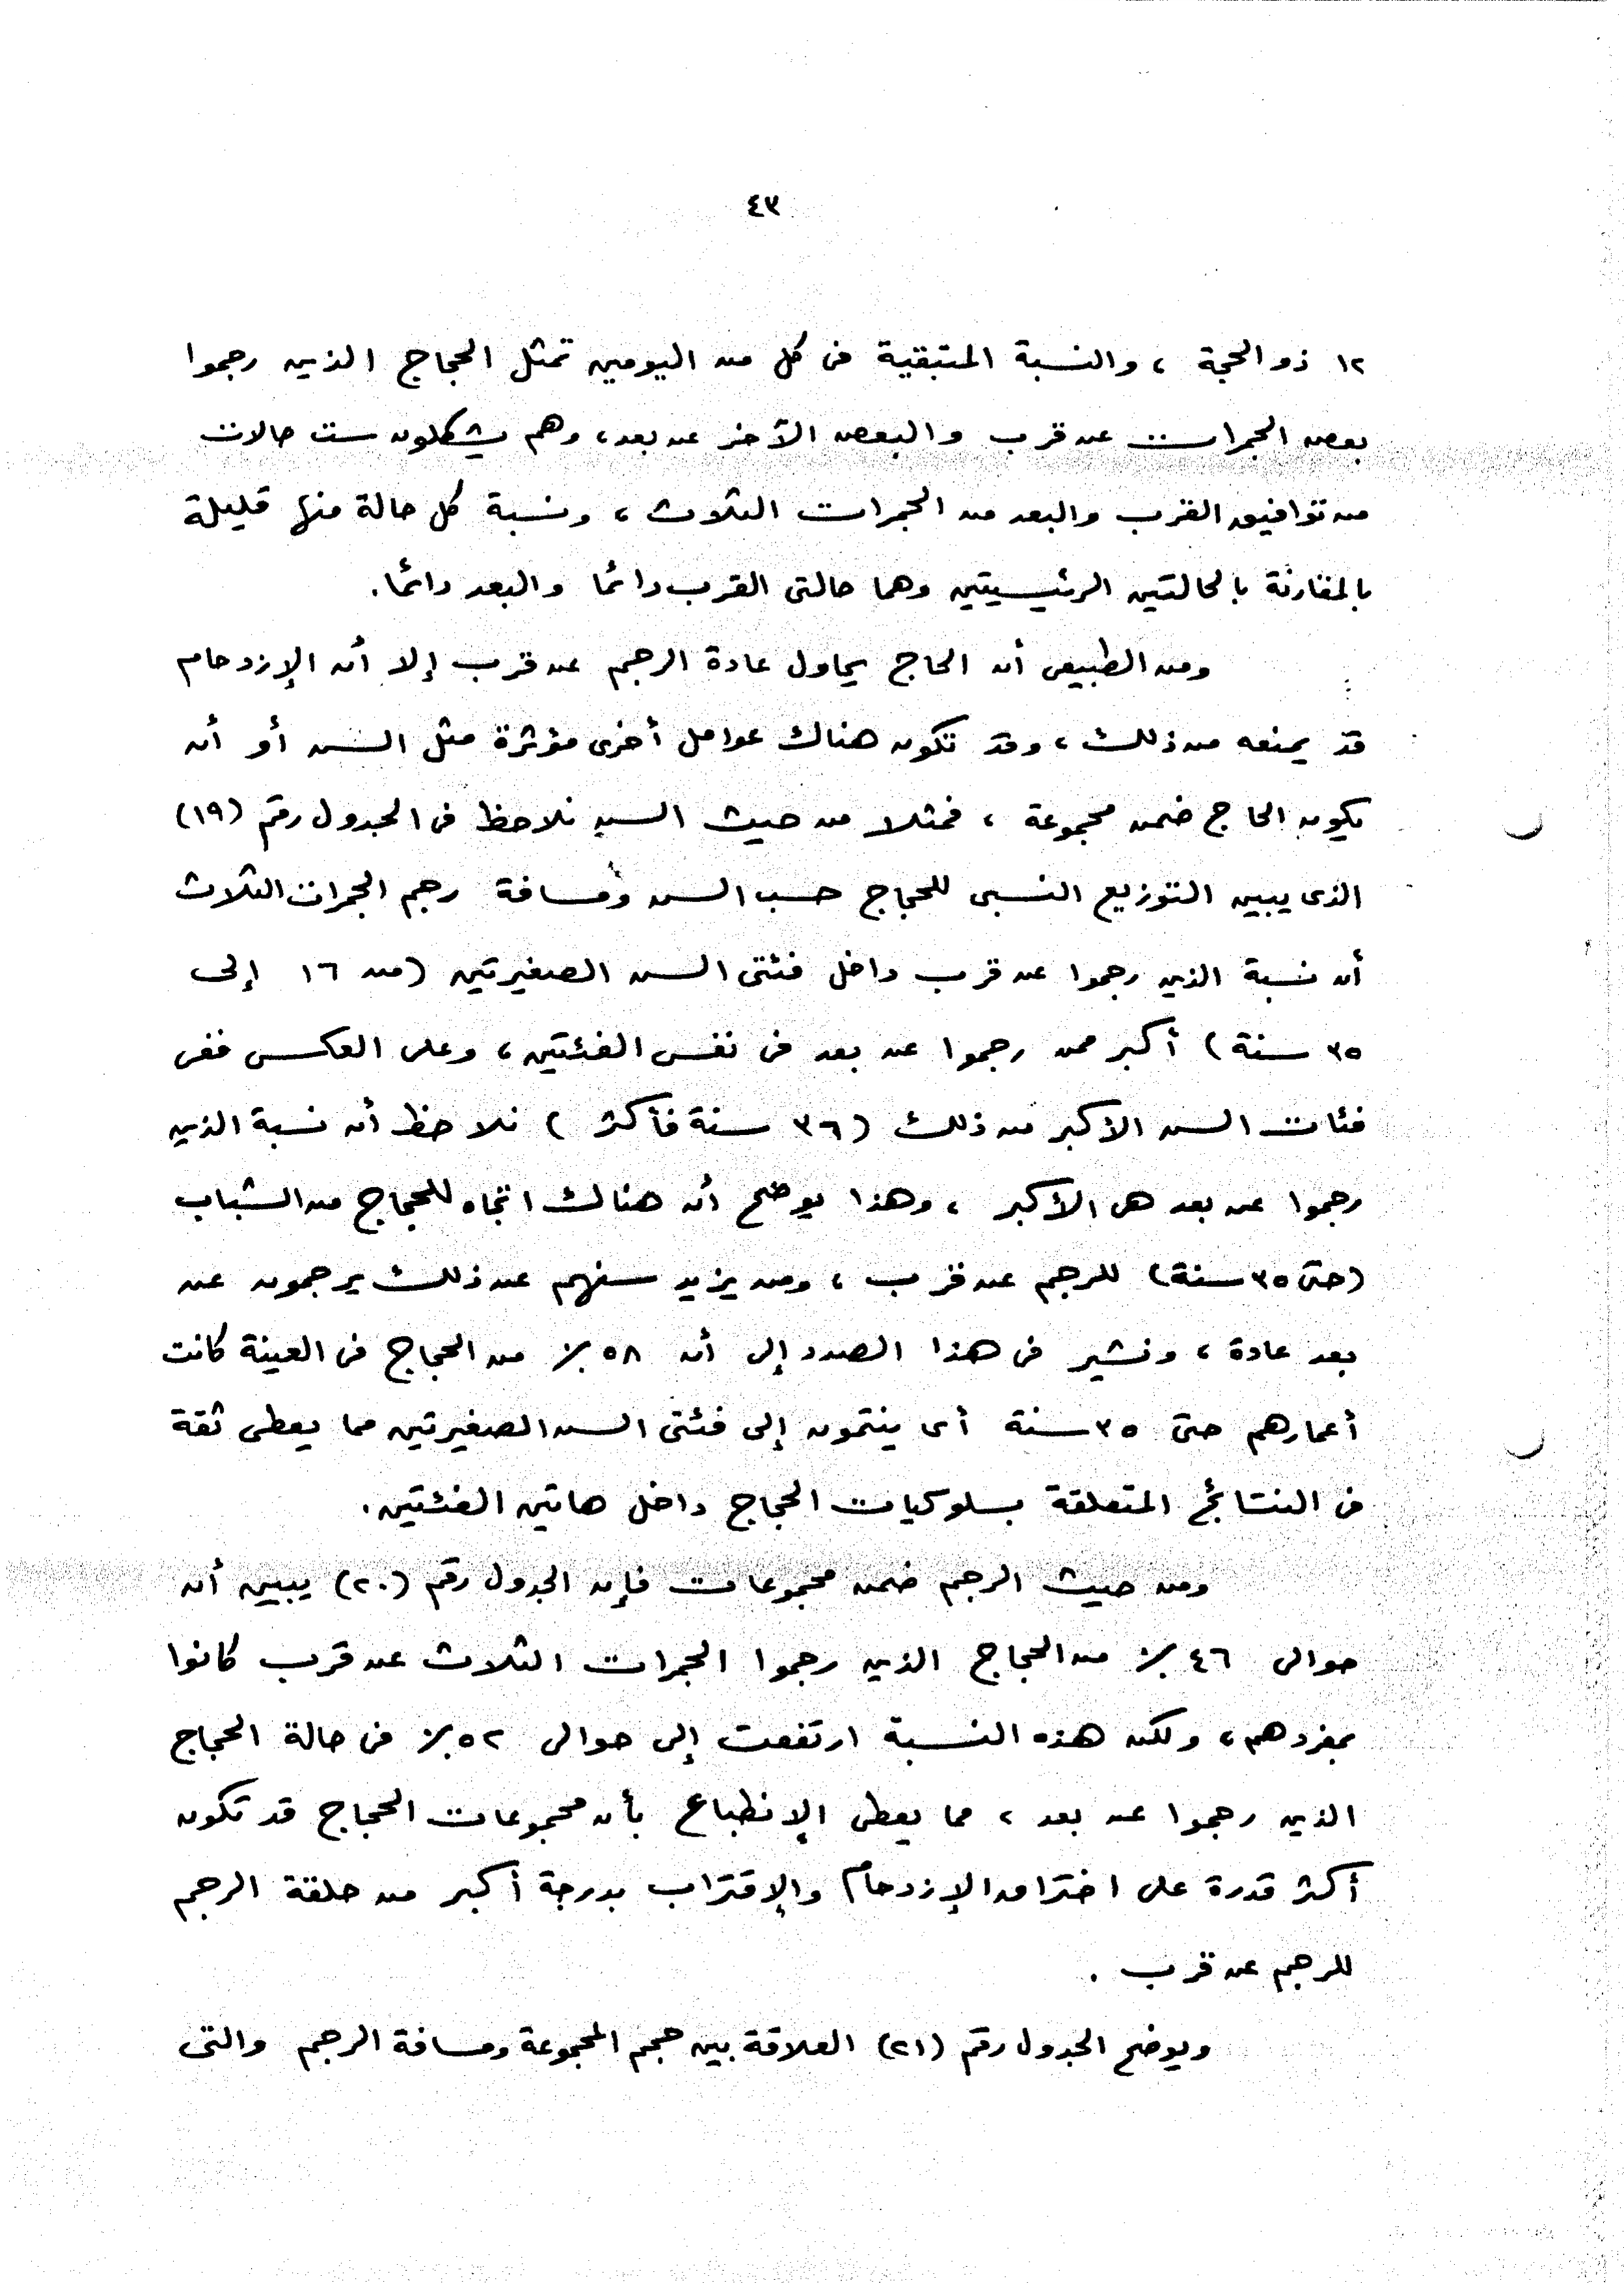 ٤٣
١٢ ذو الحجة ، والنسبة المتبقية فى كل من اليومين تمثل الحجاج الذين رجموا
بعض الجمرات عن قرب والبعض الآخر عن بعد، وهم يشكلون ست حالات
من توافيق القرب والبعد من الجمرات الثلاث ، ونسبة كل حالة منها قليلة
بالمقارنة بالحالتين الرئيسيتين وهما حالتى القرب دائمًا والبعد دائمًا.
ومن الطبيعى أن الحاج يحاول عادة الرجم عن قرب إلا أن الإزدحام
قد يمنعه من ذلك ، وقد تكون هناك عوامل أخرى مؤثرة مثل السن أو أن
يكون الحاج ضمن مجموعة ، فمثلا من حيث السن نلاحظ فى الجدول رقم (١٩)
الذى يبين التوزيع النسبى للحجاج حسب السن ومسافة رجم الجمرات الثلاث
أن نسبة الذين رجموا عن قرب داخل فئتى السن الصغيرتين (من ١٦ إلى
٣٥ سنة) أكبر ممن رجموا عن بعد فى نفس الفئتين ، وعلى العكس ففى
فئات السن الأكبر من ذلك (٣٦ سنة فأكثر) نلاحظ أن نسبة الذين
رجموا عن بعد هى الأكبر ، وهذا يوضح أن هناك اتجاه للحجاج من الشباب
(حتى ٣٥ سنة) للرجم عن قرب ، ومن يزيد سنهم عن ذلك يرجمون عن
بعد عادة ، ونشير فى هذا الصدد إلى أن ٥٨ ٪ من الحجاج فى العينة كانت
أعمارهم حتى ٣٥ سنة أى ينتمون إلى فئتى السن الصغيرتين مما يعطى ثقة
فى النتائج المتعلقة بسلوكيات الحجاج داخل هاتين الفئتين .
ومن حيث الرجم ضمن مجموعات فإن الجدول رقم (٢٠) يبين أن
حوالى ٤٦ ٪ من الحجاج الذين رجموا الجمرات الثلاث عن قرب كانوا
بمفردهم ، ولكن هذه النسبة ارتفعت إلى حوالى ٥٢ ٪ فى حالة الحجاج
الذين رجموا عن بعد ، مما يعطى الإنطباع بأن مجموعات الحجاج قد تكون
أكثر قدرة على اختراق الإزدحام والإقتراب بدرجة أكبر من حلقة الرجم
للرجم عن قرب .
ويوضح الجدول رقم (٢١) العلاقة بين حجم المجموعة ومسافة الرجم والتى